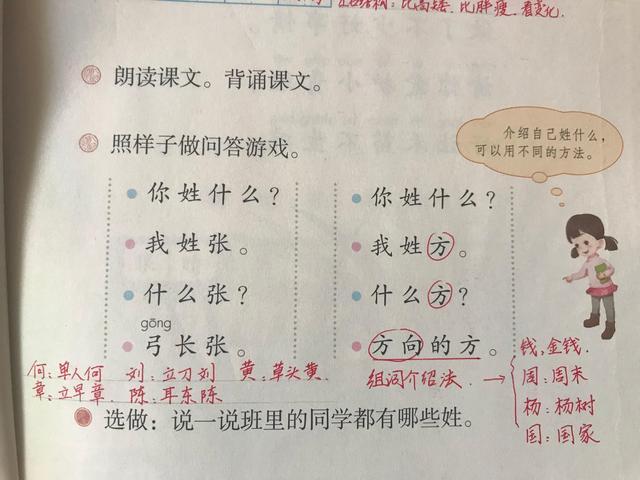 左右结构：比高矮、比胖瘦、看变化.
朗读课文。背诵课文。
照样子做问答游戏。
介绍自己姓什么，
可以用不同的方法。
你姓什么？
我姓张。
什么张？
gōng
弓长张。
你姓什么？
我姓方。
什么方？
方向的方。
何：单人何 刘：立刀刘 黄：草头黄
章：立早章 陈：耳东陈
组词介绍法 →
钱，金钱.
周：周末
杨：杨树
国：国家
选做：说一说班里的同学都有哪些姓。